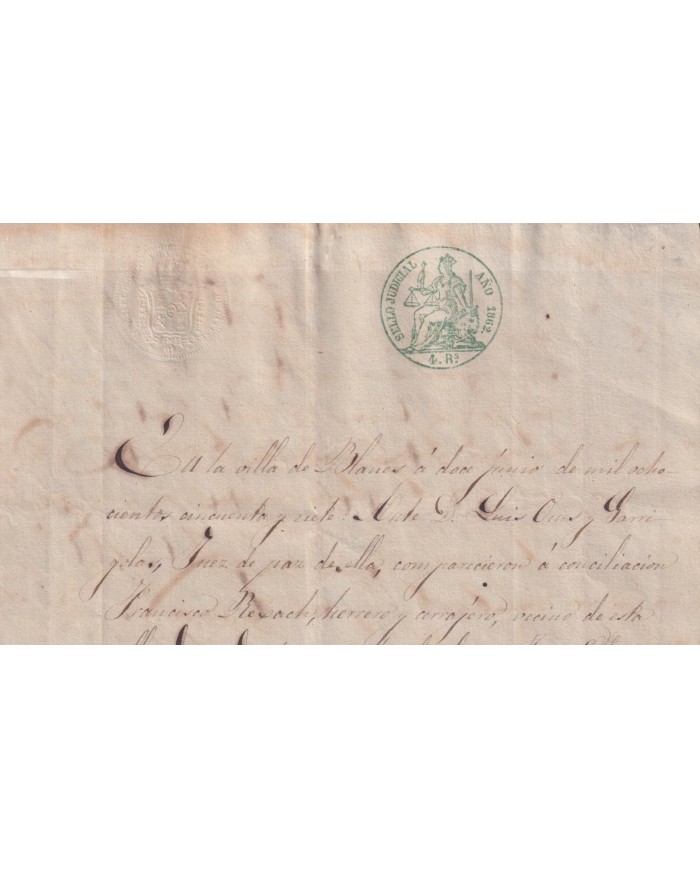 SELLO JUDICIAL AÑO 1862.
4. Rs
En la villa de Blanes á doce junio de mil ocho-
cientos cincuenta y siete: Ante D. Luis y Garri-
golas, Juez de paz de ella, comparecieron á conciliacion
Francisco Rexach, herrero y cerrajero, vecino de esta